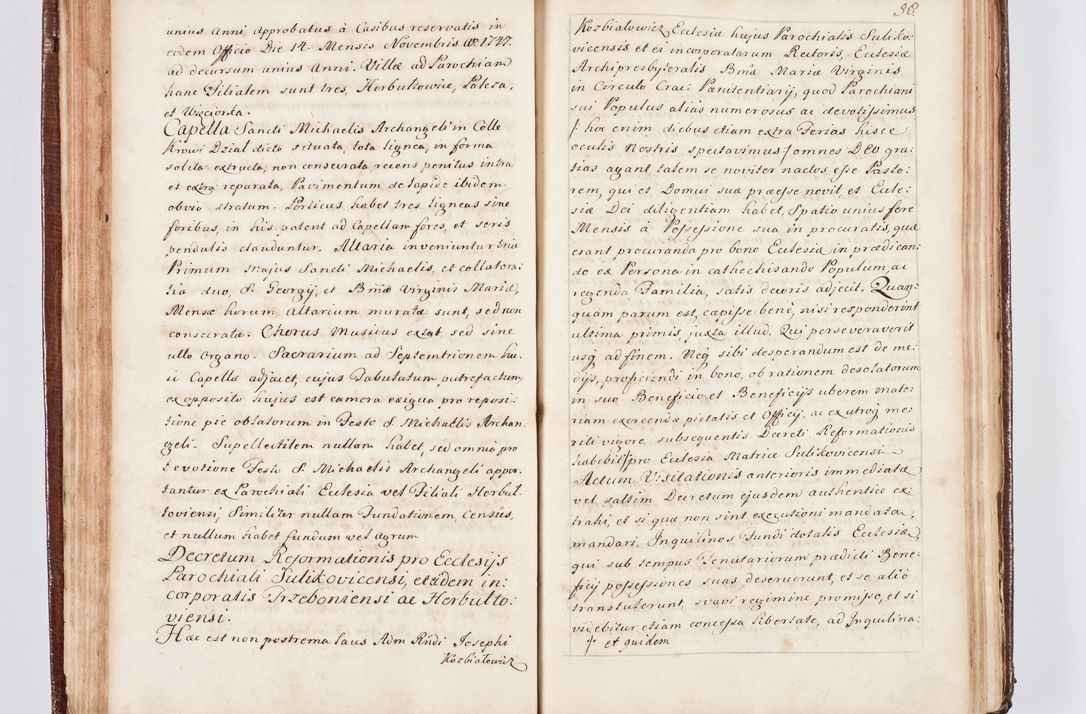 unius anni, approbatus â Casibus reservatis in
eodem Officio Die 14. Mensis Novembris Ao 1747.
ad decursum unius Anni. Villæ ad Parochiam
hanc Filialem sunt tres, Herbultowice,
et
Capella Sancti Michaelis Archangeli in Colle
Krowi Dział dicto situata, tota lignea, in forma
solita extructa, non consecrata recens penitus intra
et extra reparata, Pavimentum de lapide ibidem
obvio stratum. Porticus habet tres ligneas sine
foribus, in his patent ad Capellam fores, et seris
pendulis clauduntur. Altaria inveniuntur tria
Primum majus Sancti Michaelis, et collatera:
lia duo, S. Georgij, et Bmæ Virginis Mariæ,
Mensæ horum altarium muratæ sunt, sed non
consecratæ. Chorus Musicus exiat, sed sine
ullo organo. Sacrarium ad Septemtrionem hu:
ic Capellæ adjacet, cujus Tabulatum putrefactum,
ex opposito hujus est camera exigua pro reposi:
tione pie oblatorum in Festo S. Michaelis Archan:
geli. Supellectilem nullam habet, sed omnia pro
devotione Festo S. Michaelis Archangeli appor:
tantur ex Parochiali Ecclesia vel Filiali Herbul:
toviensi, Similiter nullam Fundationem, Census,
et nullum habet fundum vel agrum
Decretum Reformationis pro Ecclesijs
Parochiali Sulikovicensi, et eidem in:
corporatis Trzeboniensi ac Herbulto:
viensi.
Hæc est non postrema laus Adm Rndi Josephi
Kozbiałowicz
38.
Kozbiałowicz Ecclesiæ hujus Parochialis Suliko:
vicensis et ei incorporatarum Rectoris, Ecclesiæ
Archipresbyteralis Bmæ Mariæ Virginis
in Circulo Crac: Pænitentiarij, quod Parochiani
sui Populus alias numerosus ac devotissimus
/: hoc enim diebus etiam extra Ferias hisce
oculis Nostris spectavimus :/ omnes DEO gra:
tias agant, talem se noviter nactos esse Pasto:
rem, qui et Domui suæ præesse novit, et Eccle:
siæ Dei diligentiam habet, Spatio unius fere
Mensis â Possessione sua in procuratis, quæ
erant procuranda pro bono Ecclesiæ, in prædican:
do ex Persona in cathechisando Populum, ac
regenda Familia, satis decoris adjecit. Quan:
quam parum est, cæpisse benè, nisi responderint
ultima primis, juxta illud. Qui perseveraverit
usq ad finem. Neq sibi desperandum est de me:
dijs, proficiendi in bono, ob rationem desolatorum
in suo Beneficio et Beneficijs uberem mate:
riam exercendæ pietatis et Officij, ac ex utroq me:
riti vigore subsequentis Decreti Reformationis
habebit / pro Ecclesia Matrice Sulikovicensi
Actum Visitationis anterioris immediatæ
vel saltim Decretum ejusdem authentice ex:
trahi, et si qua non sint executioni mandata,
mandari. Inquilinos Fundi dotalis Ecclesiæ
qui sub tempus Tenutariorum prædicti Bene:
ficij possessiones suas deseruerunt, et se aliò
transtulerunt, suavi regimine promisso, et si
videbitur etiam concessa libertate, ad Inquilina:
† et quidem